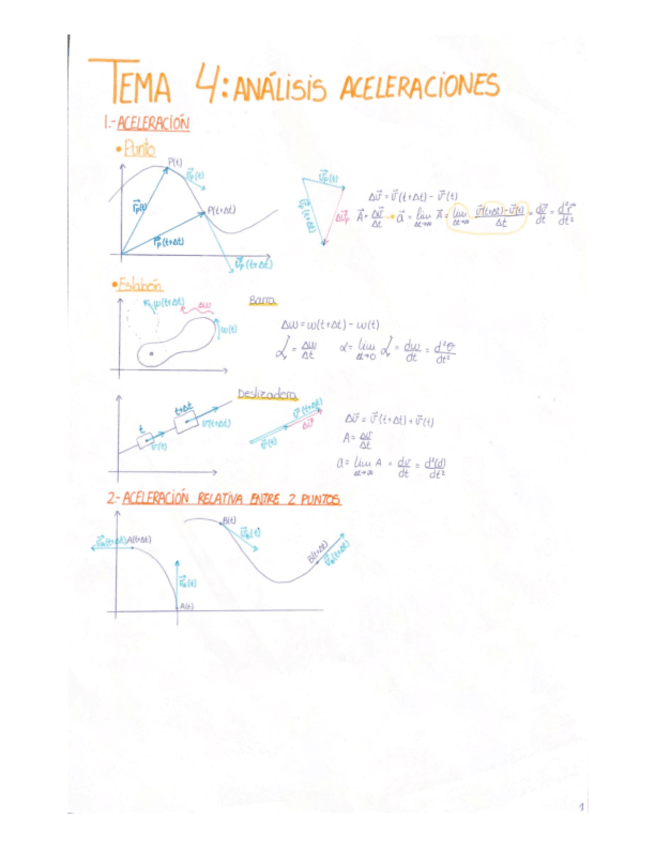 TEMA 4: ANÁLISIS ACELERACIONES
1.- ACELERACIÓN
• Punto
P(t)
v⃗p(t)
r⃗p(t)
P(t+Δt)
r⃗p(t+Δt)
v⃗p(t+Δt)
v⃗p(t)
v⃗p(t+Δt)
Δv⃗p
Δv⃗ = v⃗(t+Δt) - v⃗(t)
A⃗ = Δv⃗/Δt → a⃗ = lim Δt→∞ A⃗ = lim Δt→∞ (v⃗(t+Δt) - v⃗(t))/Δt = dv⃗/dt = d²r⃗/dt²
• Eslabón
Barra
w(t+Δt)
Δw
w(t)
Δw = w(t+Δt) - w(t)
= Δw/Δt α = lim Δt→0 = dw/dt = d²θ/dt²
Deslizadera
t
t+Δt
v⃗(t)
v⃗(t+Δt)
v⃗(t+Δt)
Δv⃗
v⃗(t)
Δv⃗ = v⃗(t+Δt) + v⃗(t)
A = Δv/Δt
a = lim Δt→∞ A = dv/dt = d²(d)/dt²
2- ACELERACIÓN RELATIVA ENTRE 2 PUNTOS
A(t+Δt)
B(t)
B(t+Δt)
A(t)
1